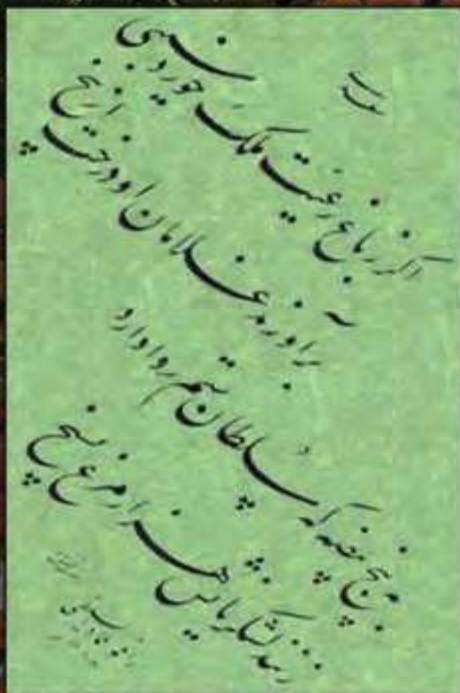 سعدی
اگر ز باغ رعیت ملک خورد سیبی
برآورند غلامان او درخت از بیخ
به پنج بیضه که سلطان ستم روا دارد
زنند لشکریانش هزار مرغ بسیخ